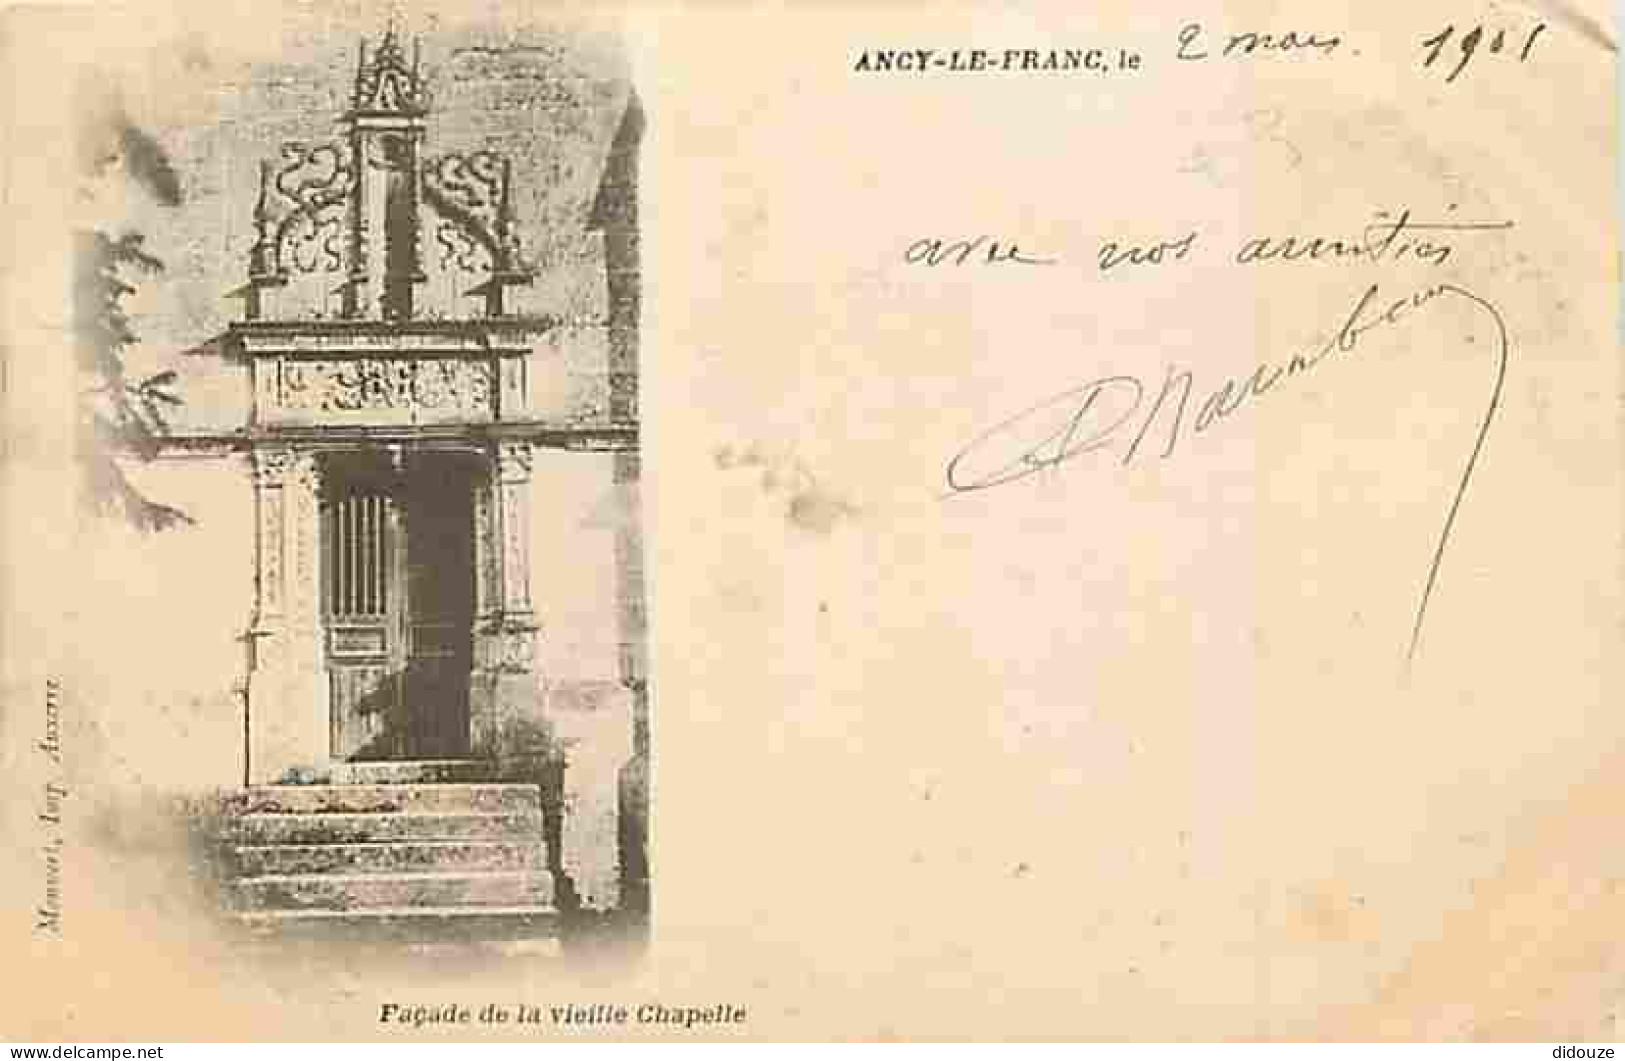 ANCY-LE-FRANC, le 2 mars 1901
avec nos amitiés
Imp. Auxerre
Façade de la vieille Chapelle
delcampe.net
didouze